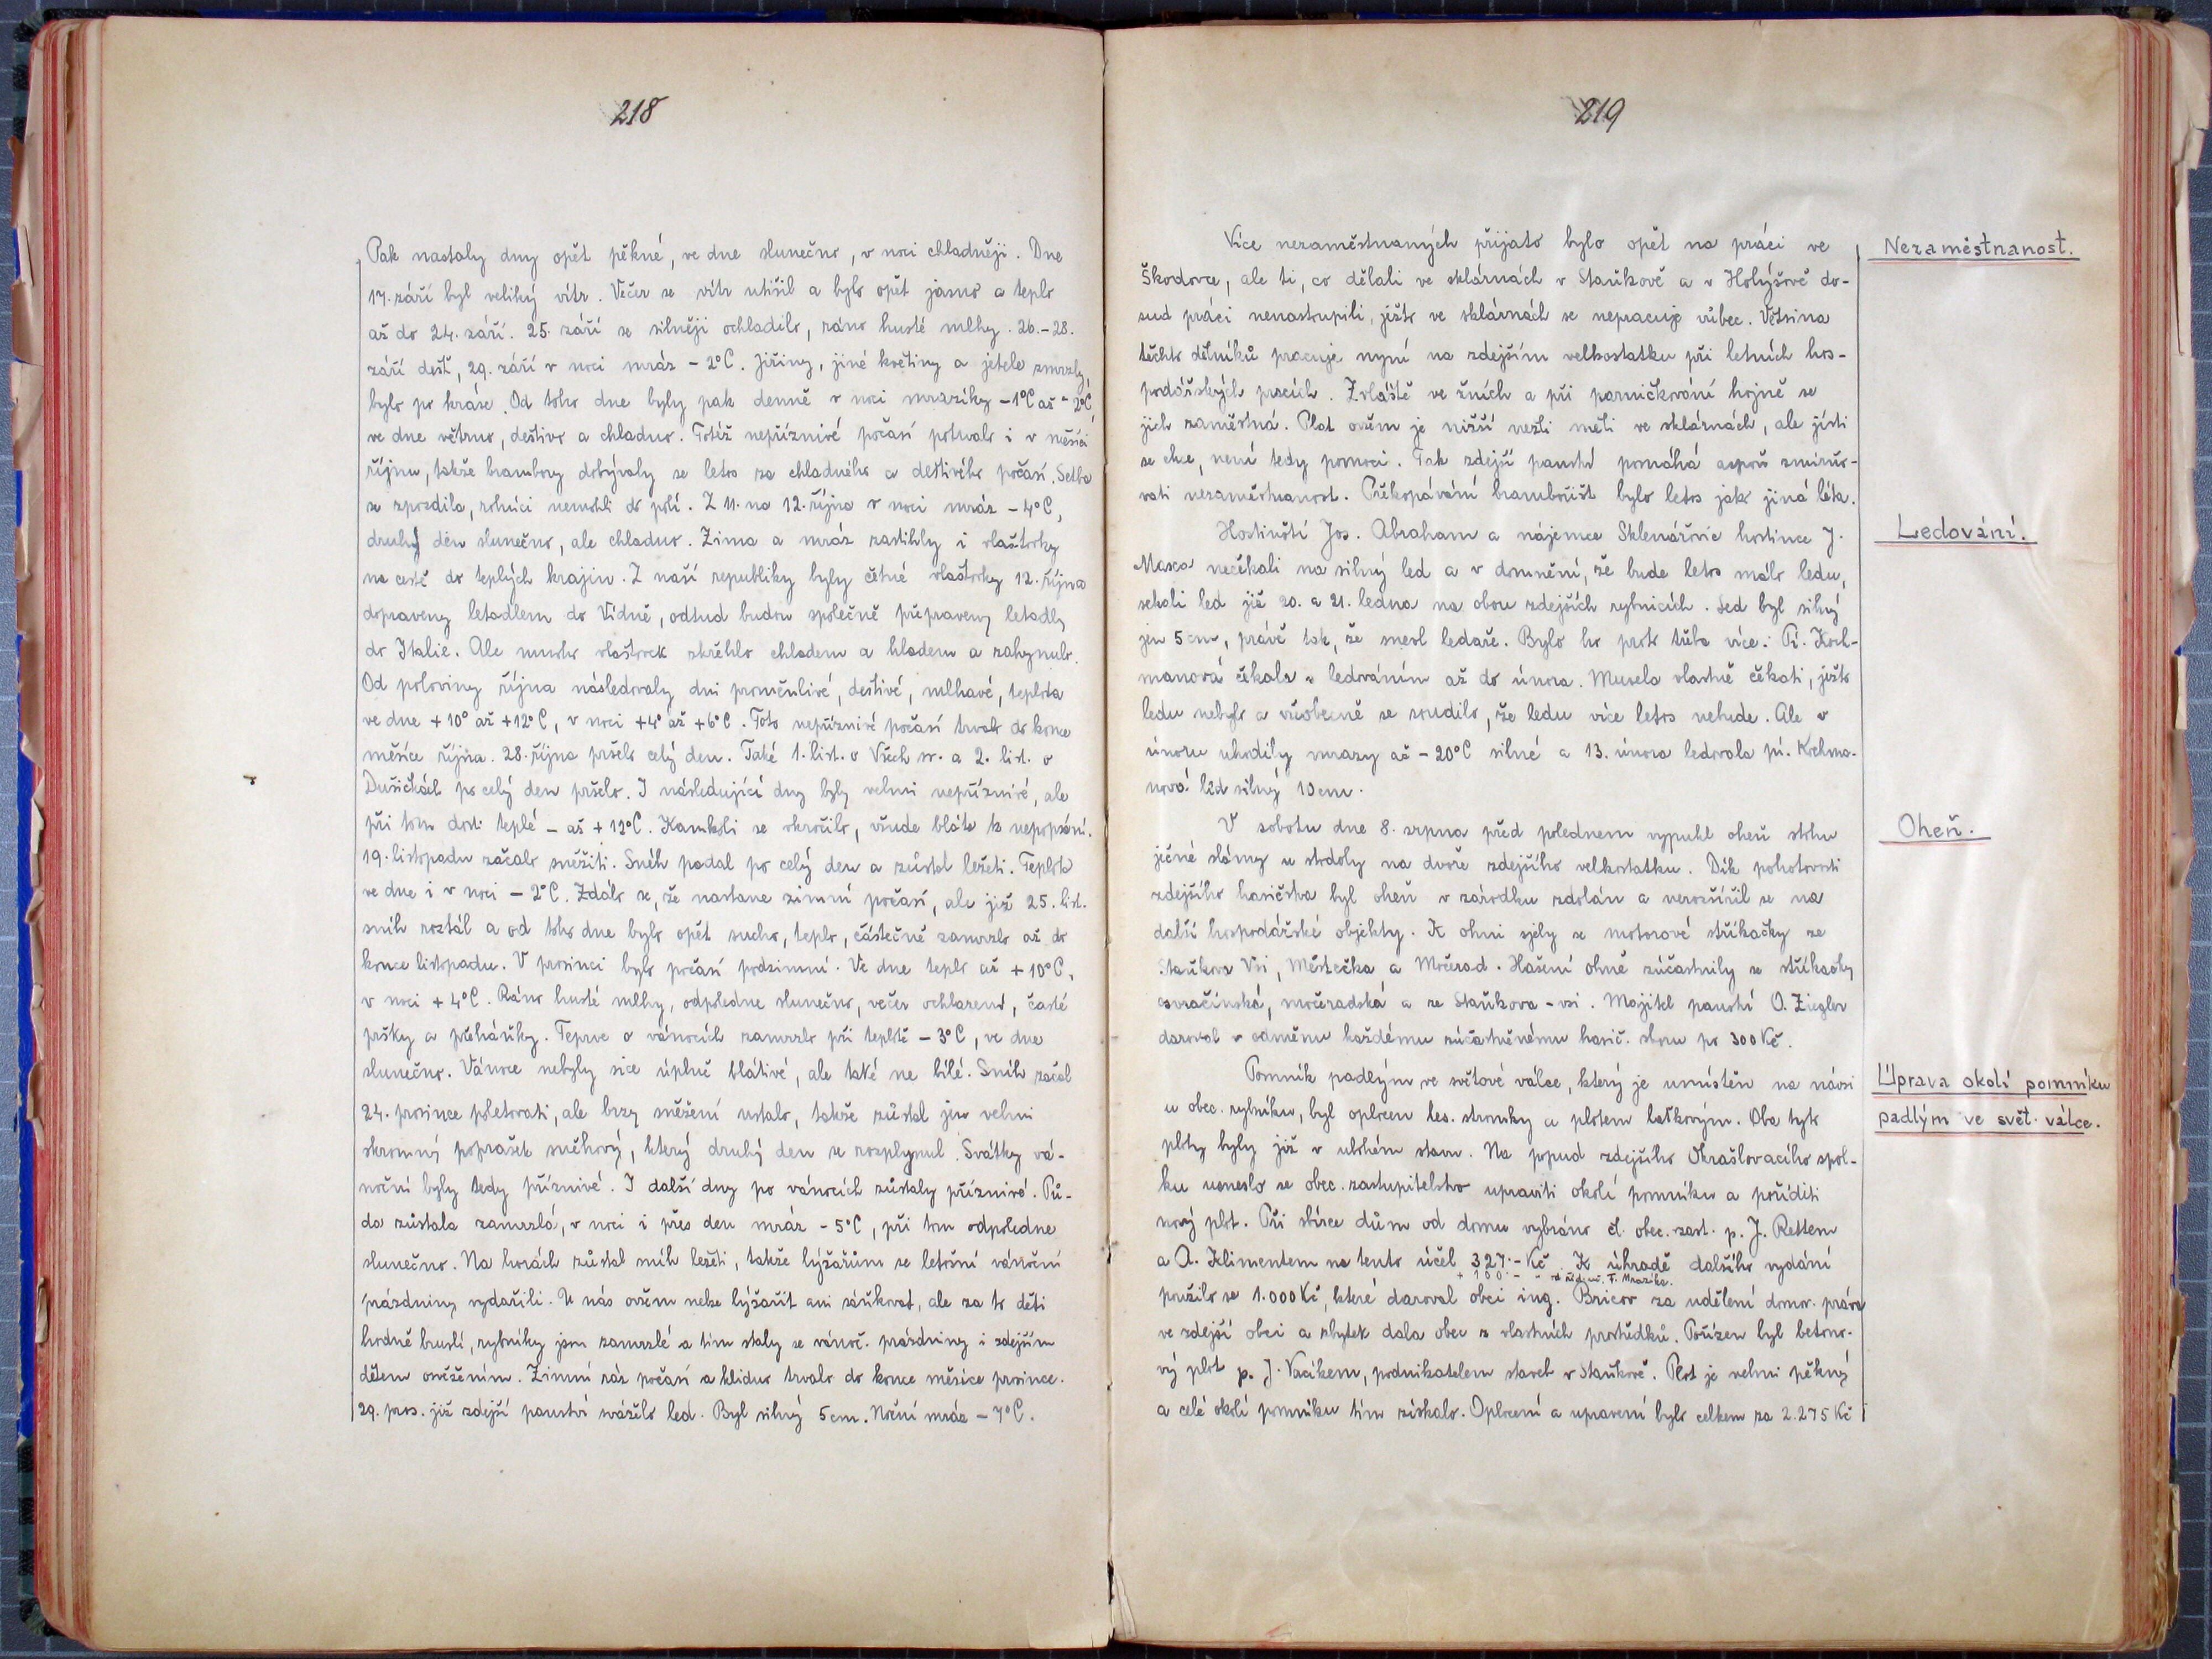 218
Pak nastaly dny opět pěkné, ve dne slunečno, v noci chladněji. Dne
17. září byl veliký vítr. Večer se vítr utišil a bylo opět jasno a teplo
až do 24. září. 25. září se silněji ochladilo, ráno husté mlhy. 26.-28.
září déšť, 29. září v noci mráz - 2°C. Jiřiny, jiné květiny a jetele zmrzly,
bylo po kráse. Od toho dne byly pak denně v noci mrazíky -1°C až -2°C,
ve dne větrno, deštivo a chladno. Totéž nepříznivé počasí potrvalo i v měsíci
říjnu, takže brambory dobývaly se letos za chladného a deštivého počasí. Setba
se zpozdila, rolníci nemohli do polí. Z 11. na 12. října v noci mráz - 4°C,
druhý den slunečno, ale chladno. Zima a mráz zastihly i vlaštovky
na cestě do teplých krajin. Z naší republiky byly četné vlaštovky 12. října
dopraveny letadlem do Vídně, odtud budou společně přepraveny letadly
do Italie. Ale mnoho vlaštovek zkřehlo chladem a hladem a zahynulo.
Od poloviny října následovaly dni proměnlivé, deštivé, mlhavé, teplota
ve dne +10° až +12°C, v noci +4° až +6°C. Toto nepříznivé počasí trvalo do konce
měsíce října. 28. října pršelo celý den. Také 1. list. o Všech sv. a 2. list. o
Dušičkách po celý den pršelo. I následující dny byly velmi nepříznivé, ale
při tom dosti teplé - až +12°C. Kamkoli se vkročilo, všude bláta k nepopsání.
19. listopadu začalo sněžiti. Sníh padal po celý den a zůstal ležeti. Teplota
ve dne i v noci - 2°C. Zdálo se, že nastane zimní počasí, ale již 25. list.
sníh roztál a od toho dne bylo opět sucho, teplo, částečně zamrzlo až do
konce listopadu. V prosinci bylo počasí podzimní. Ve dne teplo až +10°C,
v noci +4°C. Ráno husté mlhy, odpoledne slunečno, večer ochlazení, časté
pršky a přeháňky. Teprve o vánocích zamrzlo při teplotě - 3°C, ve dne
slunečno. Vánoce nebyly sice úplně blátivé, ale také ne bílé. Sníh začal
24. prosince poletovati, ale brzy sněžení ustalo, takže zůstal jen velmi
skromný poprašek sněhový, který druhý den se rozplynul. Svátky vá-
noční byly tedy příznivé. I další dny po vánocích zůstaly příznivé. Pů-
da zůstala zamrzlá, v noci i přes den mráz - 5°C, při tom odpoledne
slunečno. Na horách zůstal sníh ležeti, takže lyžařům se letošní vánoční
prázdniny vydařily. U nás ovšem nelze lyžařit ani sáňkovat, ale za to děti
hodně bruslí, rybníky jsou zamrzlé a tím staly se vánoč. prázdniny i zdejším
dětem osvěžením. Zimní ráz počasí a klidno trvalo do konce měsíce prosince.
29. pros. již zdejší panství sváželo led. Byl silný 5 cm. Noční mráz - 7°C.
219
Více nezaměstnaných přijato bylo opět na práci ve
Škodovce, ale ti, co dělali ve sklárnách v Staňkově a v Holýšově do-
sud práci nenastoupili, ježto ve sklárnách se nepracuje vůbec. Většina
těchto dělníků pracuje nyní na zdejším velkostatku při letních hos-
podářských pracích. Zvláště ve žních a při parničkování hojně se
jich zaměstná. Plat ovšem je nižší nežli měli ve sklárnách, ale jísti
se chce, není tedy pomoci. Tak zdejší panství pomáhá aspoň zmirňo-
vati nezaměstnanost. Překopávání bramborišť bylo letos jak jiná léta.
Nezaměstnanost.
Hostinští Jos. Abraham a nájemce Sklenářovic hostince J.
Masca nečekali na silný led a v domnění, že bude letos málo ledu,
sekali led již 20. a 21. ledna na obou zdejších rybnících. Led byl silný
jen 5 cm, právě tak, že snesl ledaře. Bylo ho proto třeba více. Pí. Koch-
manová čekala s ledováním až do února. Musela vlastně čekati, ježto
ledu nebylo a všeobecně se soudilo, že ledu více letos nebude. Ale v
únoru uhodily mrazy až - 20°C silné a 13. února ledovala pí. Kochma-
nová led silný 10 cm.
Ledování.
V sobotu dne 8. srpna před polednem vypukl oheň stohu
ječné slámy u stodoly na dvoře zdejšího velkostatku. Dík pohotovosti
zdejšího hasičstva byl oheň v zárodku zdolán a nerozšířil se na
další hospodářské objekty. K ohni sjely se motorové stříkačky ze
Staňkova Vsi, Městečka a Močerad. Hašení ohně zúčastnily se stříkačky
osvračínská, močeradská a ze Staňkova-vsi. Majitel panství O. Ziegler
daroval v odměnu každému zúčastněnému hasič. sboru po 300 Kč.
Oheň.
Pomník padlým ve světové válce, který je umístěn na návsi
u obec. rybníku, byl oplocen les. stromky a plotem laťkovým. Oba tyto
ploty byly již v ubohém stavu. Na popud zdejšího Okrašlovacího spol-
ku usneslo se obec. zastupitelstvo upraviti okolí pomníku a poříditi
nový plot. Při sbírce dům od domu vybráno čl. obec. zast. p. J. Rettem
a A. Klimentem na tento účel 327.- Kč. K úhradě dalšího vydání
+ 100.- " od říd. uč. F. Mrazíka.
použilo se 1.000 Kč, které daroval obci ing. Bricov za udělení domov. práva
ve zdejší obci a zbytek dala obec z vlastních prostředků. Pořízen byl betono-
vý plot p. J. Vacíkem, podnikatelem staveb v Staňkově. Plot je velmi pěkný
a celé okolí pomníku tím získalo. Oplocení a upravení bylo celkem za 2.275 Kč
Úprava okolí pomníku
padlým ve svět. válce.